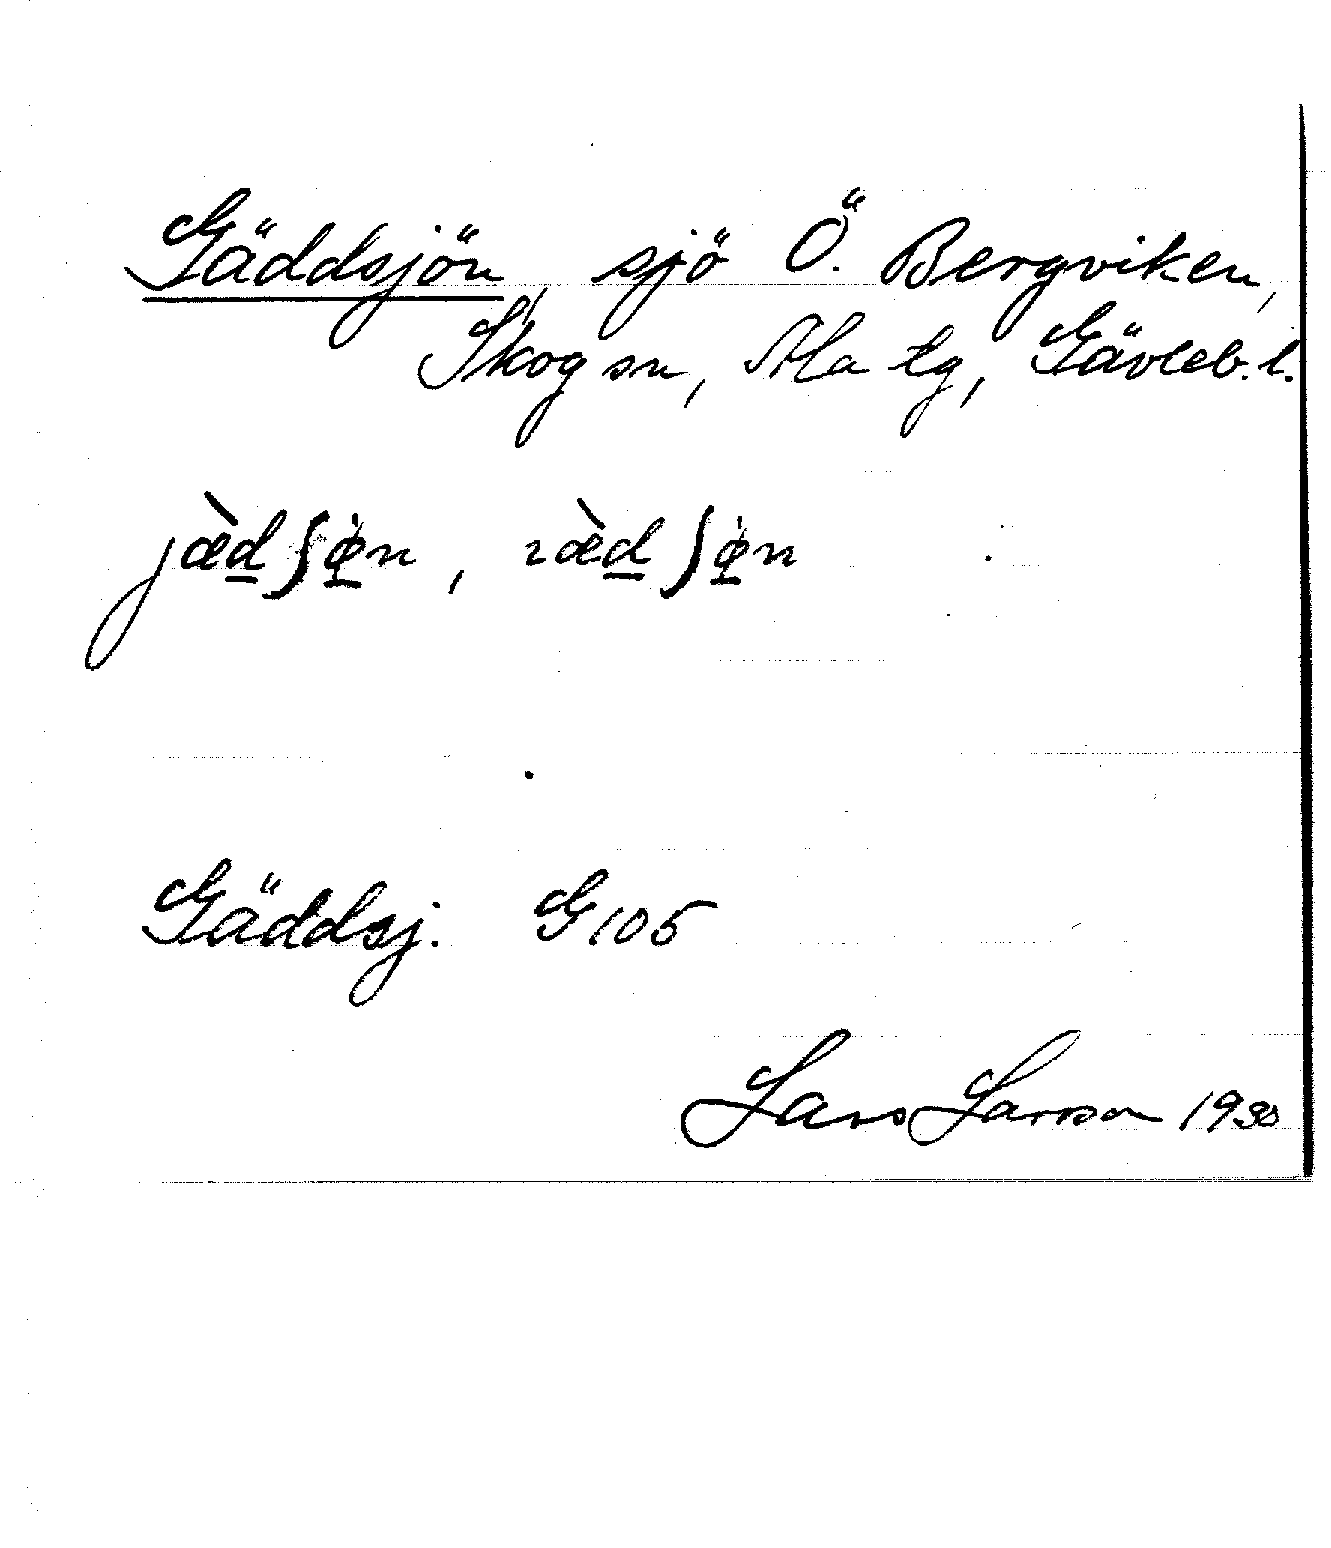 Gäddsjön, sjö Ö. Bergviken,
Skog sn, Ala tg, Gävleb. l.
jæ̀d̲ʃø̲̇n, ıæ̀d̲ʃø̲̇n
Gäddsj. G105
Lars Larsson 1930